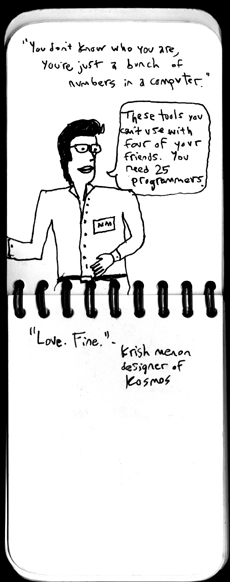 "You don't know who you are,
you're just a bunch of
numbers in a computer."
These tools you
can't use with
four of your
friends. You
need 25
programmers.
"Love. Fine." -
Krish menon
designer of
Kosmos